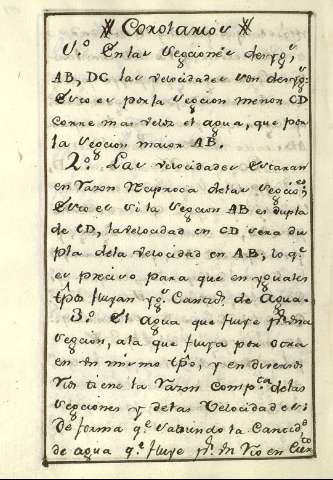 Corolarios
1.º En las secciones desyg.s
AB, DC las velocidades son desyg.s
Esto es por la seccion menor CD
corre mas veloz el agua, que por
la seccion maior AB.
2.º Las velocidades estaran
en razon reciproca de las seccio.es
Esto es si la seccion AB es dupla
de CD, la velocidad en CD sera du
pla de la velocidad en AB; lo q.e
es preciso para que en yguales
tpõs fluyan yg.s Cantid.s de Agua.
3.º El agua que fluye p.r una
seccion, a la que fluya por otra
en un mismo tpõ, y en diversos
rios tiene la razon comp.ta de las
secciones y de las Velocidades
De forma q.e sabiendo la Cantid.d
de agua q.e fluye p.r un rio en cier
to